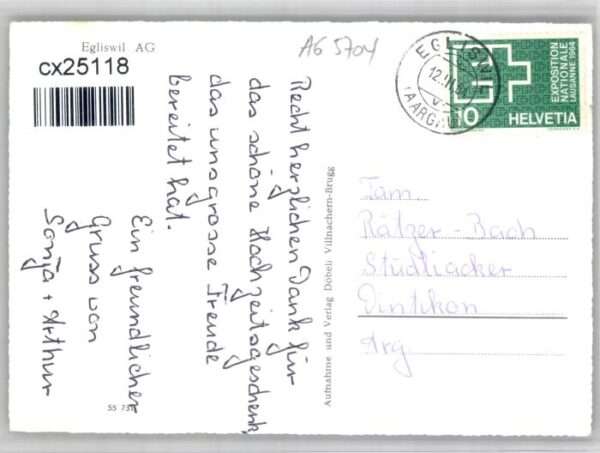 Egliswil AG
cx25118
AG 5704
Recht herzlichen Dank für
das schöne Hochzeitsgeschenk,
das uns grosse Freude
bereitet hat.
Ein freundlicher
Gruss von
Sonja + Arthur
55 73
Aufnahme und Verlag Dobeli Villnachern-Brugg
EGLISWIL
12.
(AARGAU)
EXPOSITION
NATIONALE
LAUSANNE 1964
10 HELVETIA
Fam.
Rätzer-Bach
Stüdliacker
Dintikon
Arg